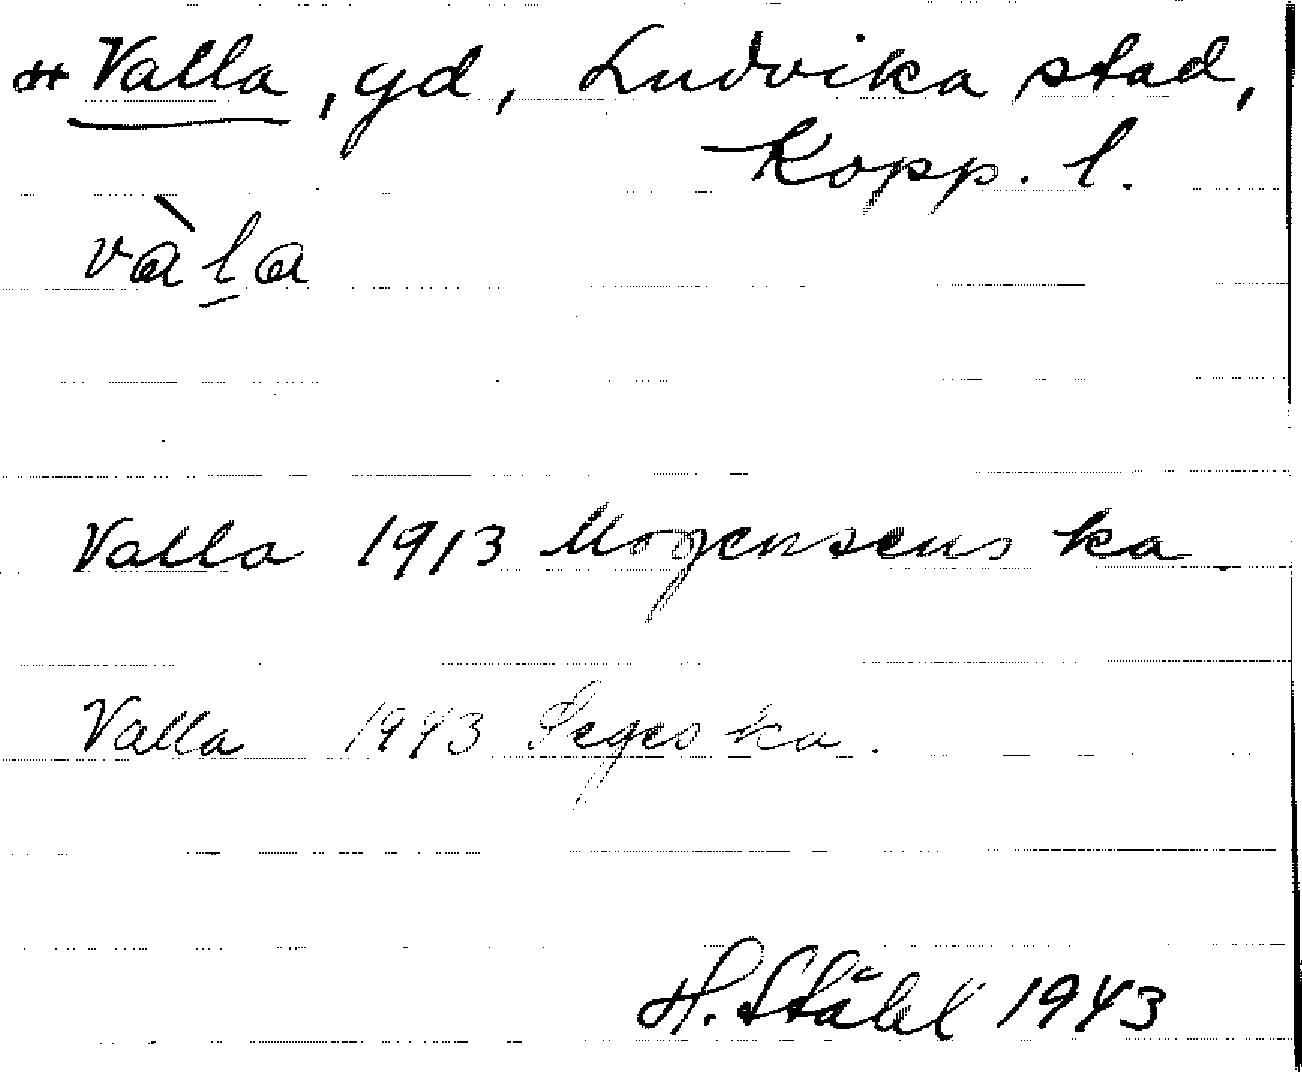 * Valla, gd, Ludvika stad,
Kopp. l.
vàl̲a
Valla 1913 Mogensens ka.
Valla 1943 Seges ka.
H. Ståhl 1943